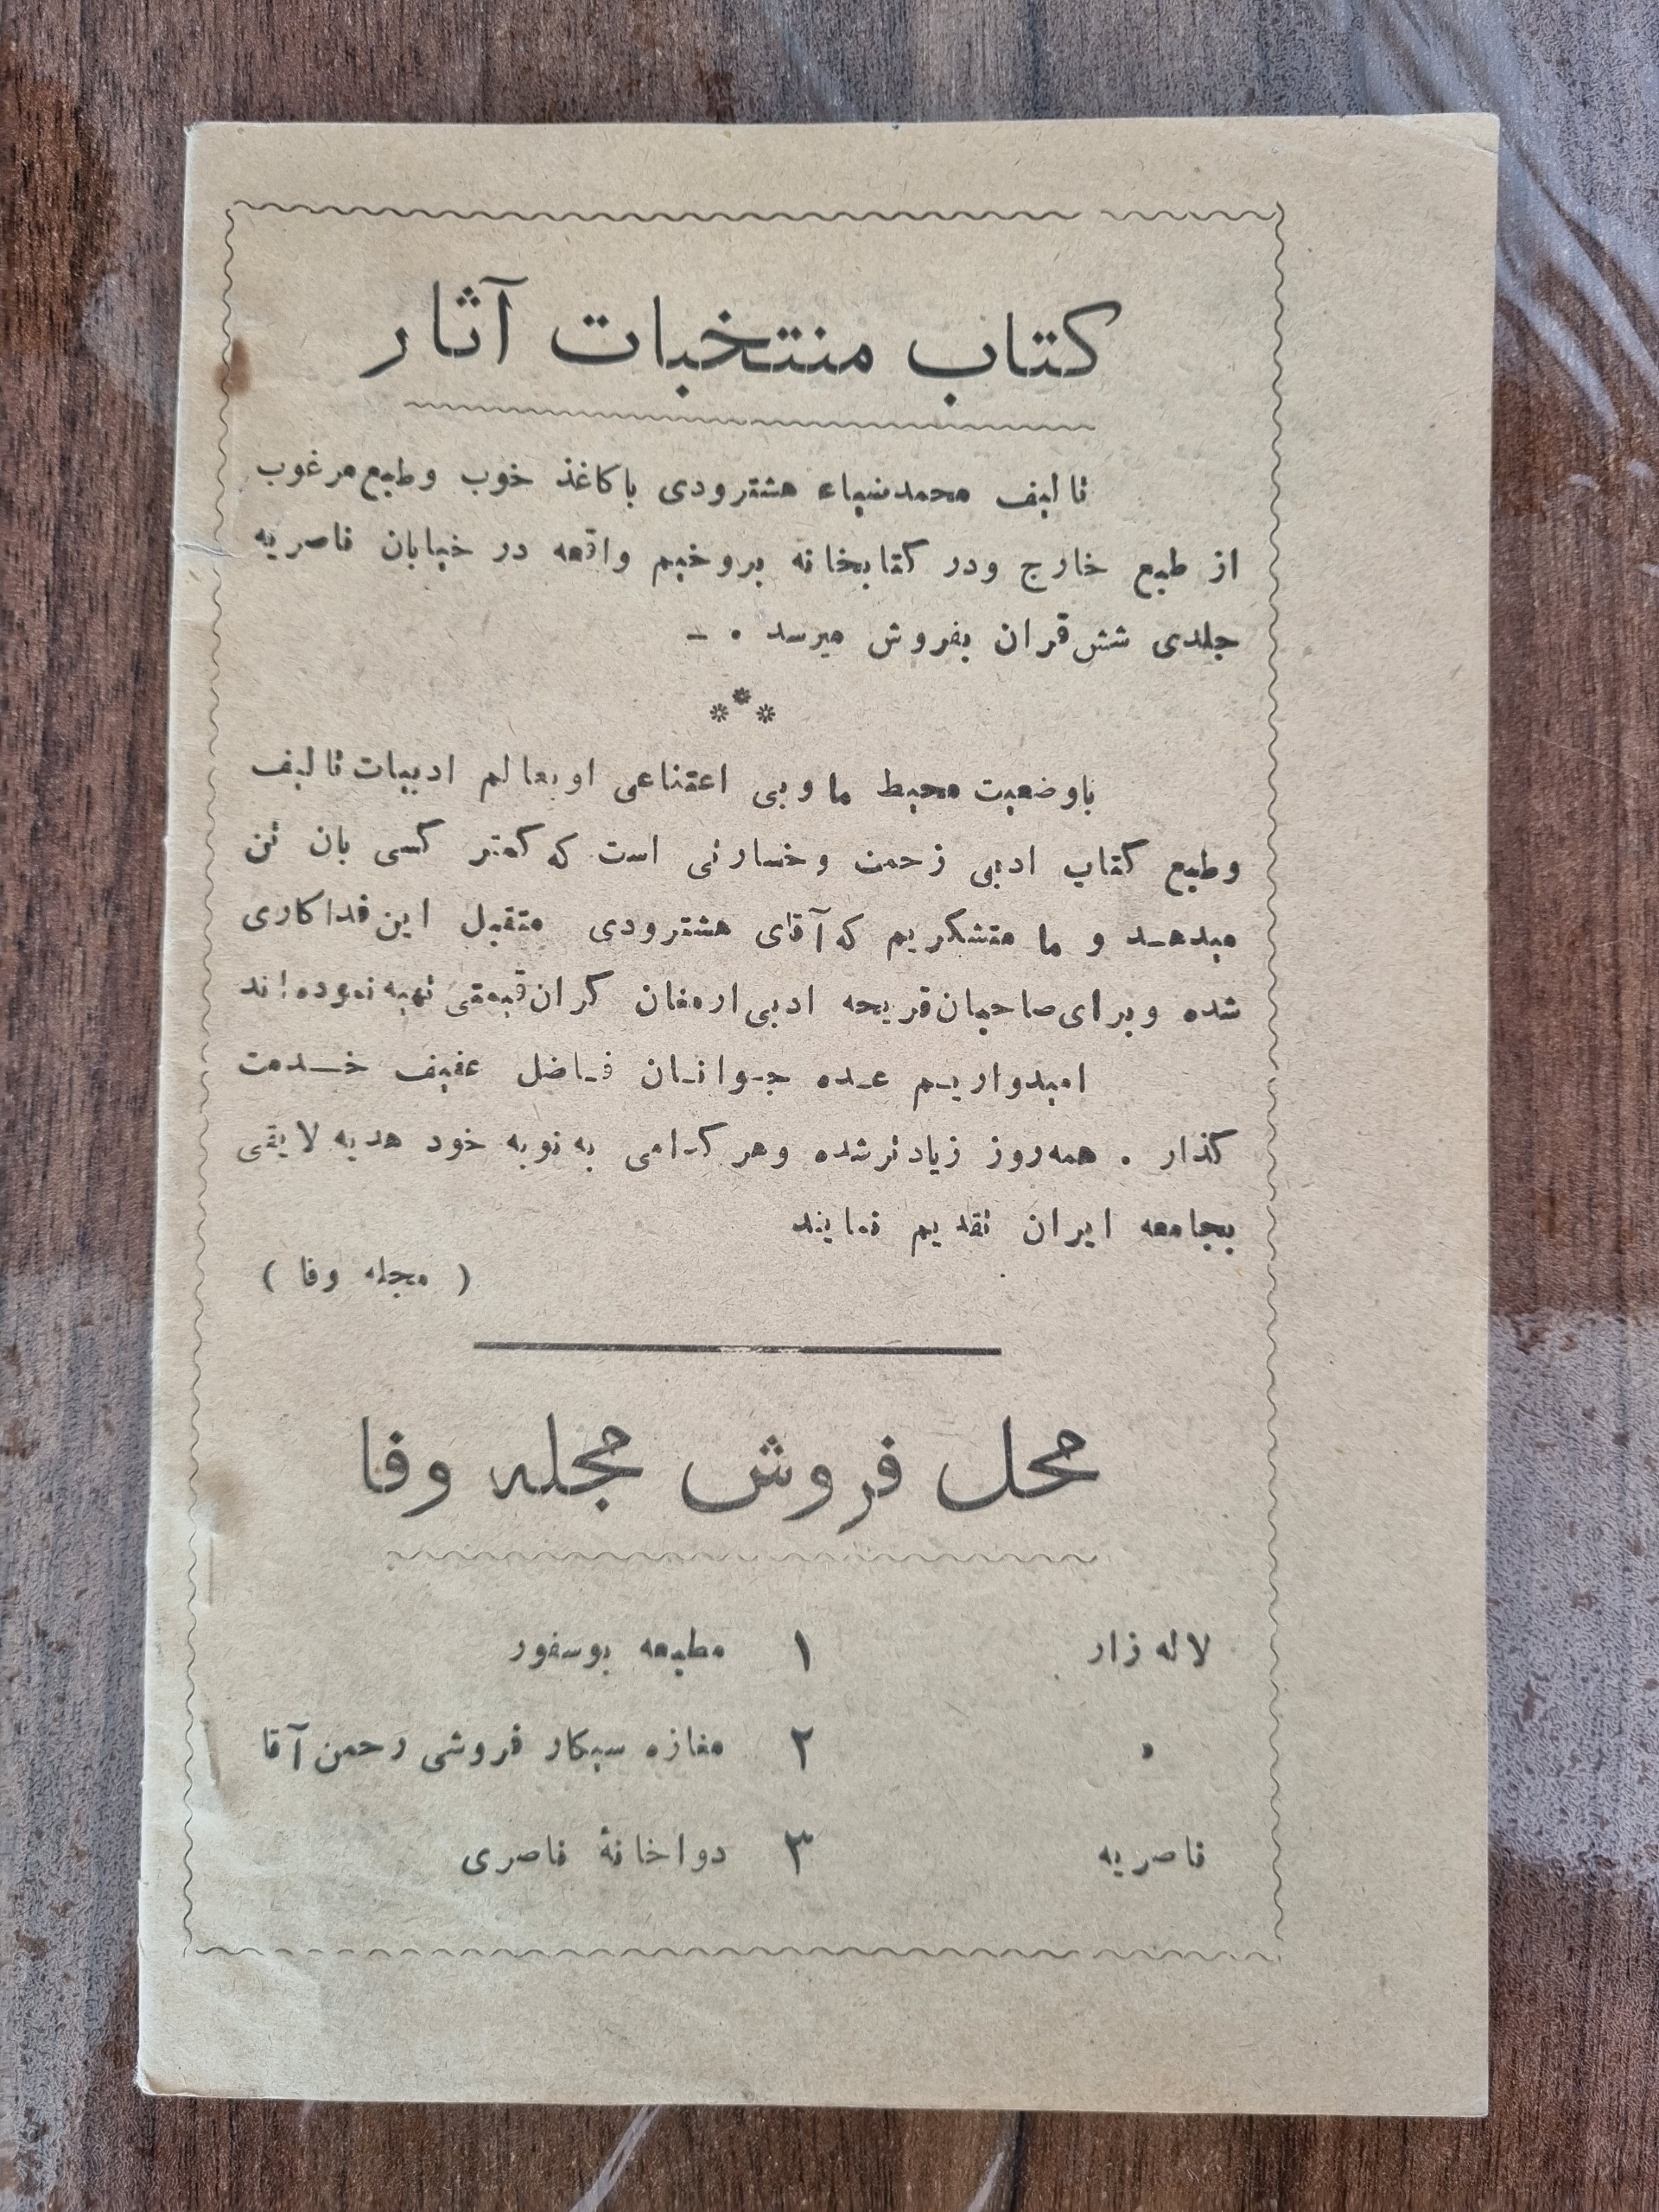 کتاب منتخبات آثار
تالیف محمدضیاء هشترودی باکاغذ خوب وطبع مرغوب
از طبع خارج ودر کتابخانه بروخیم واقعه در خیابان ناصریه
جلدی شش قران بفروش میرسد . –
***
باوضعیت محیط ما وبی اعتناعی او بعالم ادبیات تالیف
وطبع کتاب ادبی زحمت وخسارتی است که کمتر کسی بان تن
میدهد و ما متشکریم که آقای هشترودی متقبل این فداکاری
شده وبرای صاحبان قریحه ادبی ارمغان گران قیمتی تهیه نموده اند
امیدواریم عده جوانان فاضل عفیف خدمت
گذار . همه روز زیادترشده وهر کدامی به نوبه خود هدیه لایقی
بجامعه ایران تقدیم نمایند
( مجله وفا )
محل فروش مجله وفا
لاله زار ۱ مطبعه بوسفور
، ۲ مغازه سیکار فروشی رحمن آقا
ناصریه ۳ دواخانهٔ ناصری